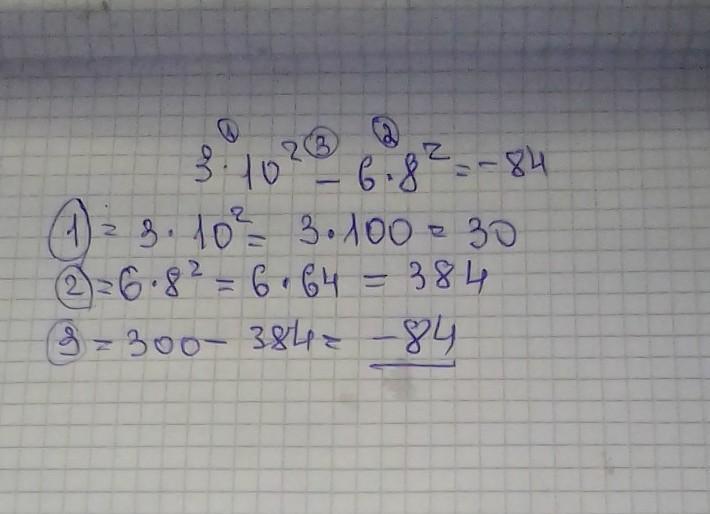 ① ③ ②
3·10² - 6·8² = -84
① = 3·10² = 3·100 = 30
② = 6·8² = 6·64 = 384
③ = 300 - 384 = -84